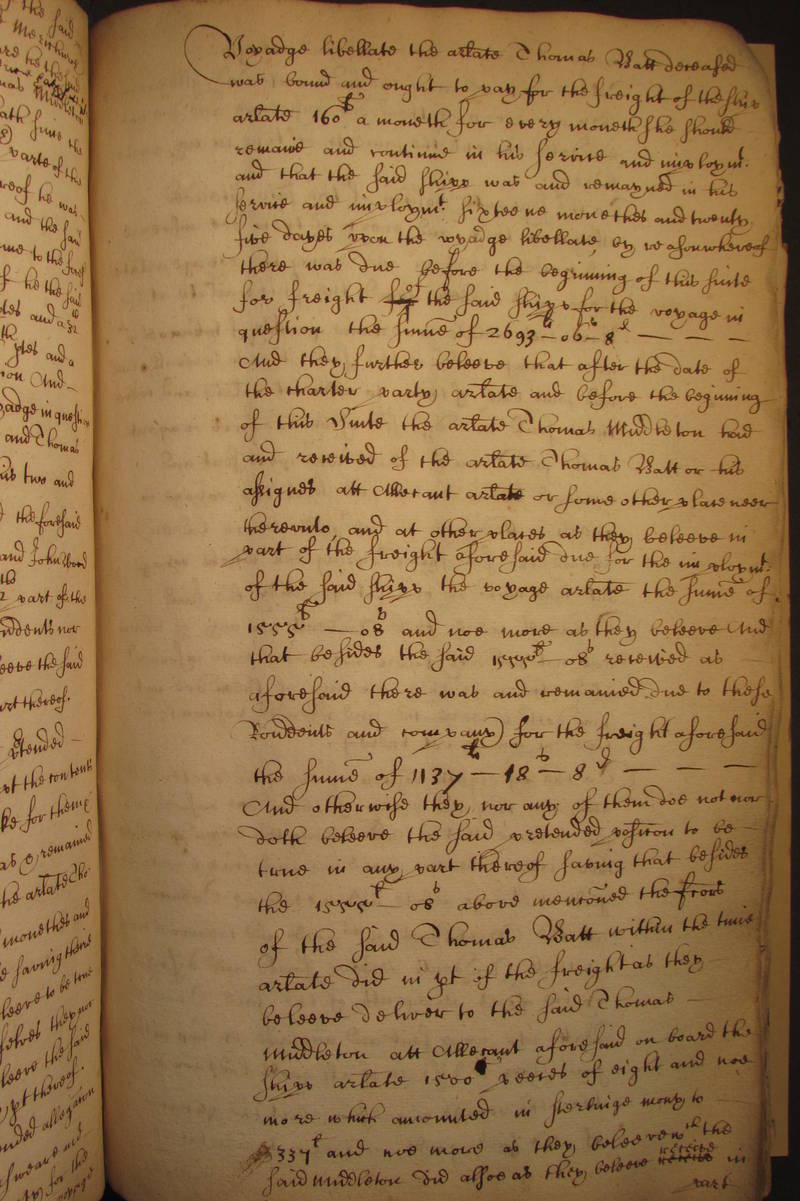 the said
yadge in question
and Thomas
his two and
the foresaid
and John Wood
part of the
ndents nor
leeve the said
art thereof.
tended
ot the contents
ke for them
as & remained
he arlate
monethes and
e saving their
leeve to be true
selves they nor
leeve the said
pt thereof.
nded allegation
Voyadge libellate the arlate Thomas Batt deceased
was bound and ought to pay for the freight of the shipp
arlate 160li a moneth for every moneth she should
remaine and continue in his service and imploymt.
and that the said shipp was and remayned in his
service and imploymt. sixteene monethes and twenty
five dayes upon the voyadge libellate, by reason whereof
there was due before the beginning of this suite
for freight of the said shipp for the voyage in
question the summe of 2693li - 06s - 8d — — —
And they further beleeve that after the date of
the charter party arlate and before the beginning
of this Suite the arlate Thomas Middleton had
and received of the arlate Thomas Batt or his
assignes att Allecant arlate or some other place neer
thereunto, and at other places as they beleeve in
part of the freight aforesaid due for the imploymt.
of the said shipp the voyage arlate the summe of
1555li — 08s and noe more as they beleeve And
that besides the said 1555li 08s received as
aforesaid there was and remained due to these
Rondents and company for the freight aforesaid
the summe of 1137li — 18s — 8d — — —
And otherwise they nor any of them doe not nor
doth beleeve the said pretended position to be
true in any part thereof saving that besides
the 1555li 08s above mentioned the ffcors
of the said Thomas Batt within the time
arlate did in pt of the freight as they
beleeve deliver to the said Thomas
Middleton att Allecant aforesaid on board the
shipp arlate 1500 peeces of eight and noe
more which amounted in sterlinge mony to
337li and noe more as they beleeve wch the
said Middleton did alsoe as they beleeve receive in
part